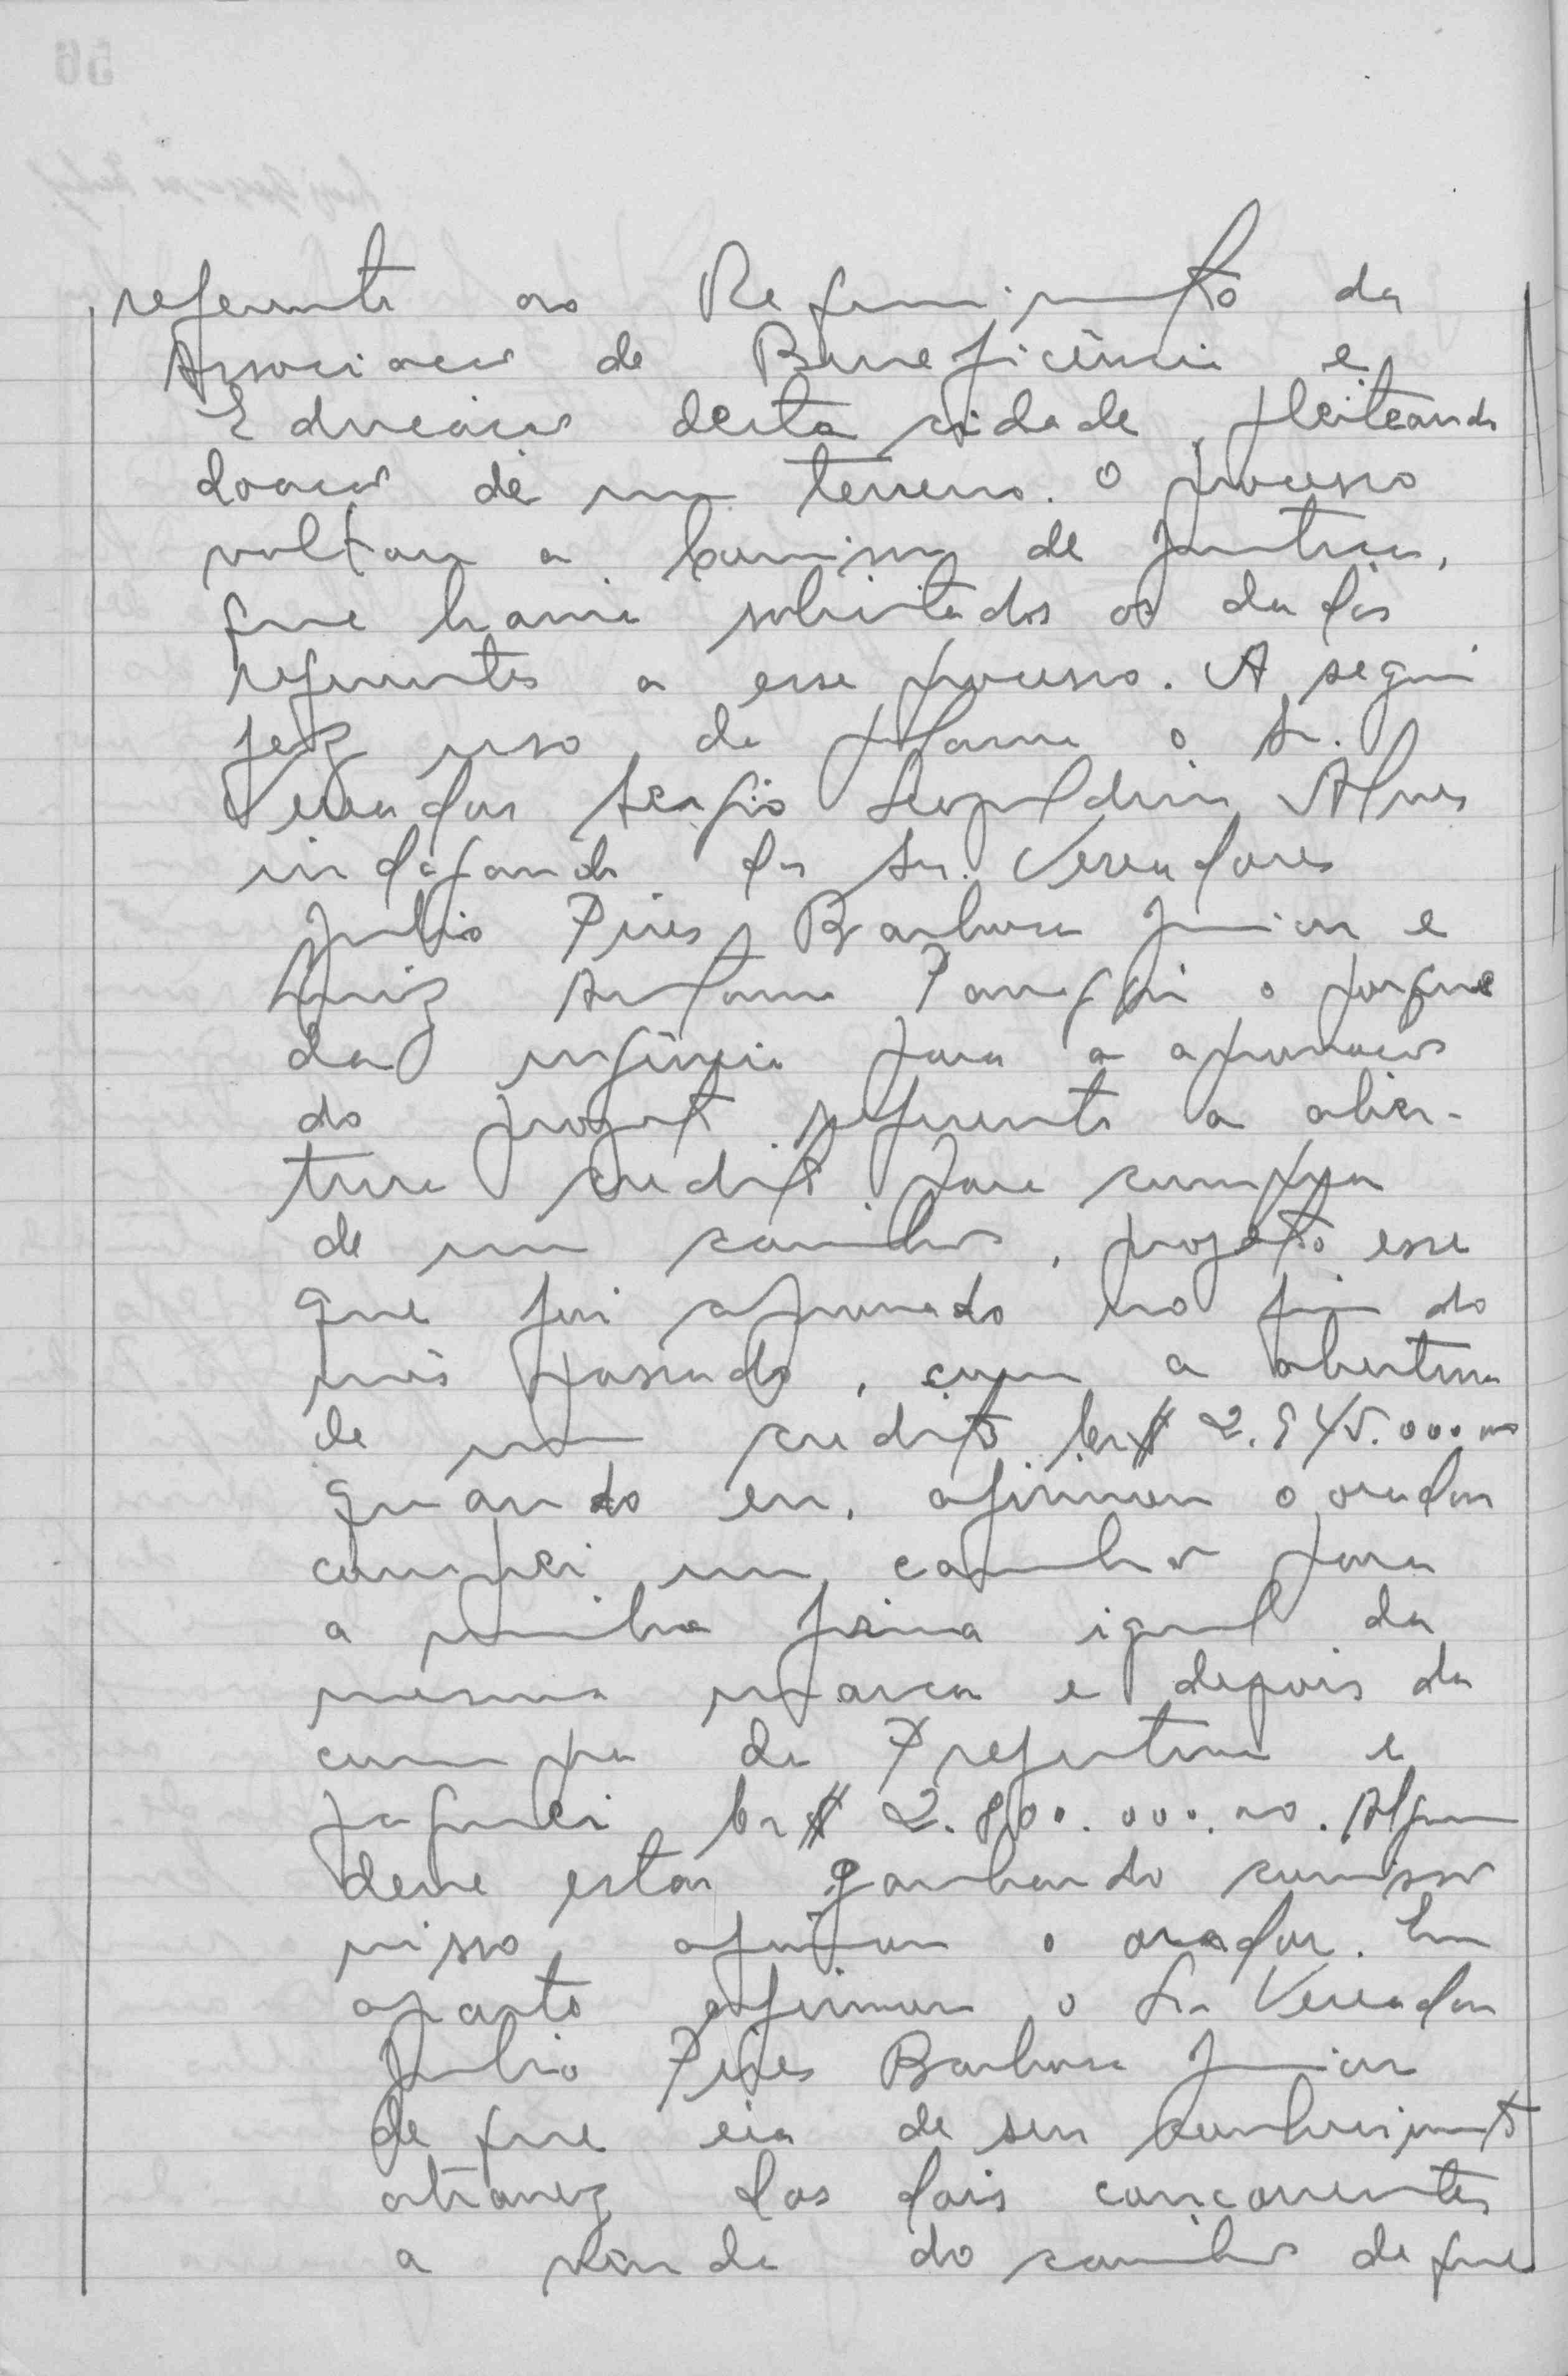 referente ao Requerimento da
Associacao de Beneficência e
Educacao desta cidade, pleiteando
doacao de um terreno. O processo
voltou a Comissão de Justica,
que havia solicitados os dados
referentes a esse processo. A seguir
fez uso da palavra o Sr.
Vereador Sergio Leopoldino Alves
indagando dos Srs. Vereadores
Julio Pires Barbosa Junior e
Luiz Antonio o porque
da urgência para a aprovacao
do projeto referente a aber-
tura credito para compra
de um caminhão, projeto esse
que foi aprovado no fim do
mês passado, com a abertura
de um credito Cr$ 2.945.000,00
quando eu, afirmou o orador
comprei um caminhão para
a minha firma igual da
mesma marca e depois da
compra da Prefeitura e
paguei Cr$ 2.800.000,00. Alguem
deve estar ganhando comissão
nisso, afirmou o orador. Em
aparte afirmou o Sr. Vereador
Julio Pires Barbosa Junior
de que era de seu conhecimento
atravez dos dois concorrentes
a venda do caminhão de que